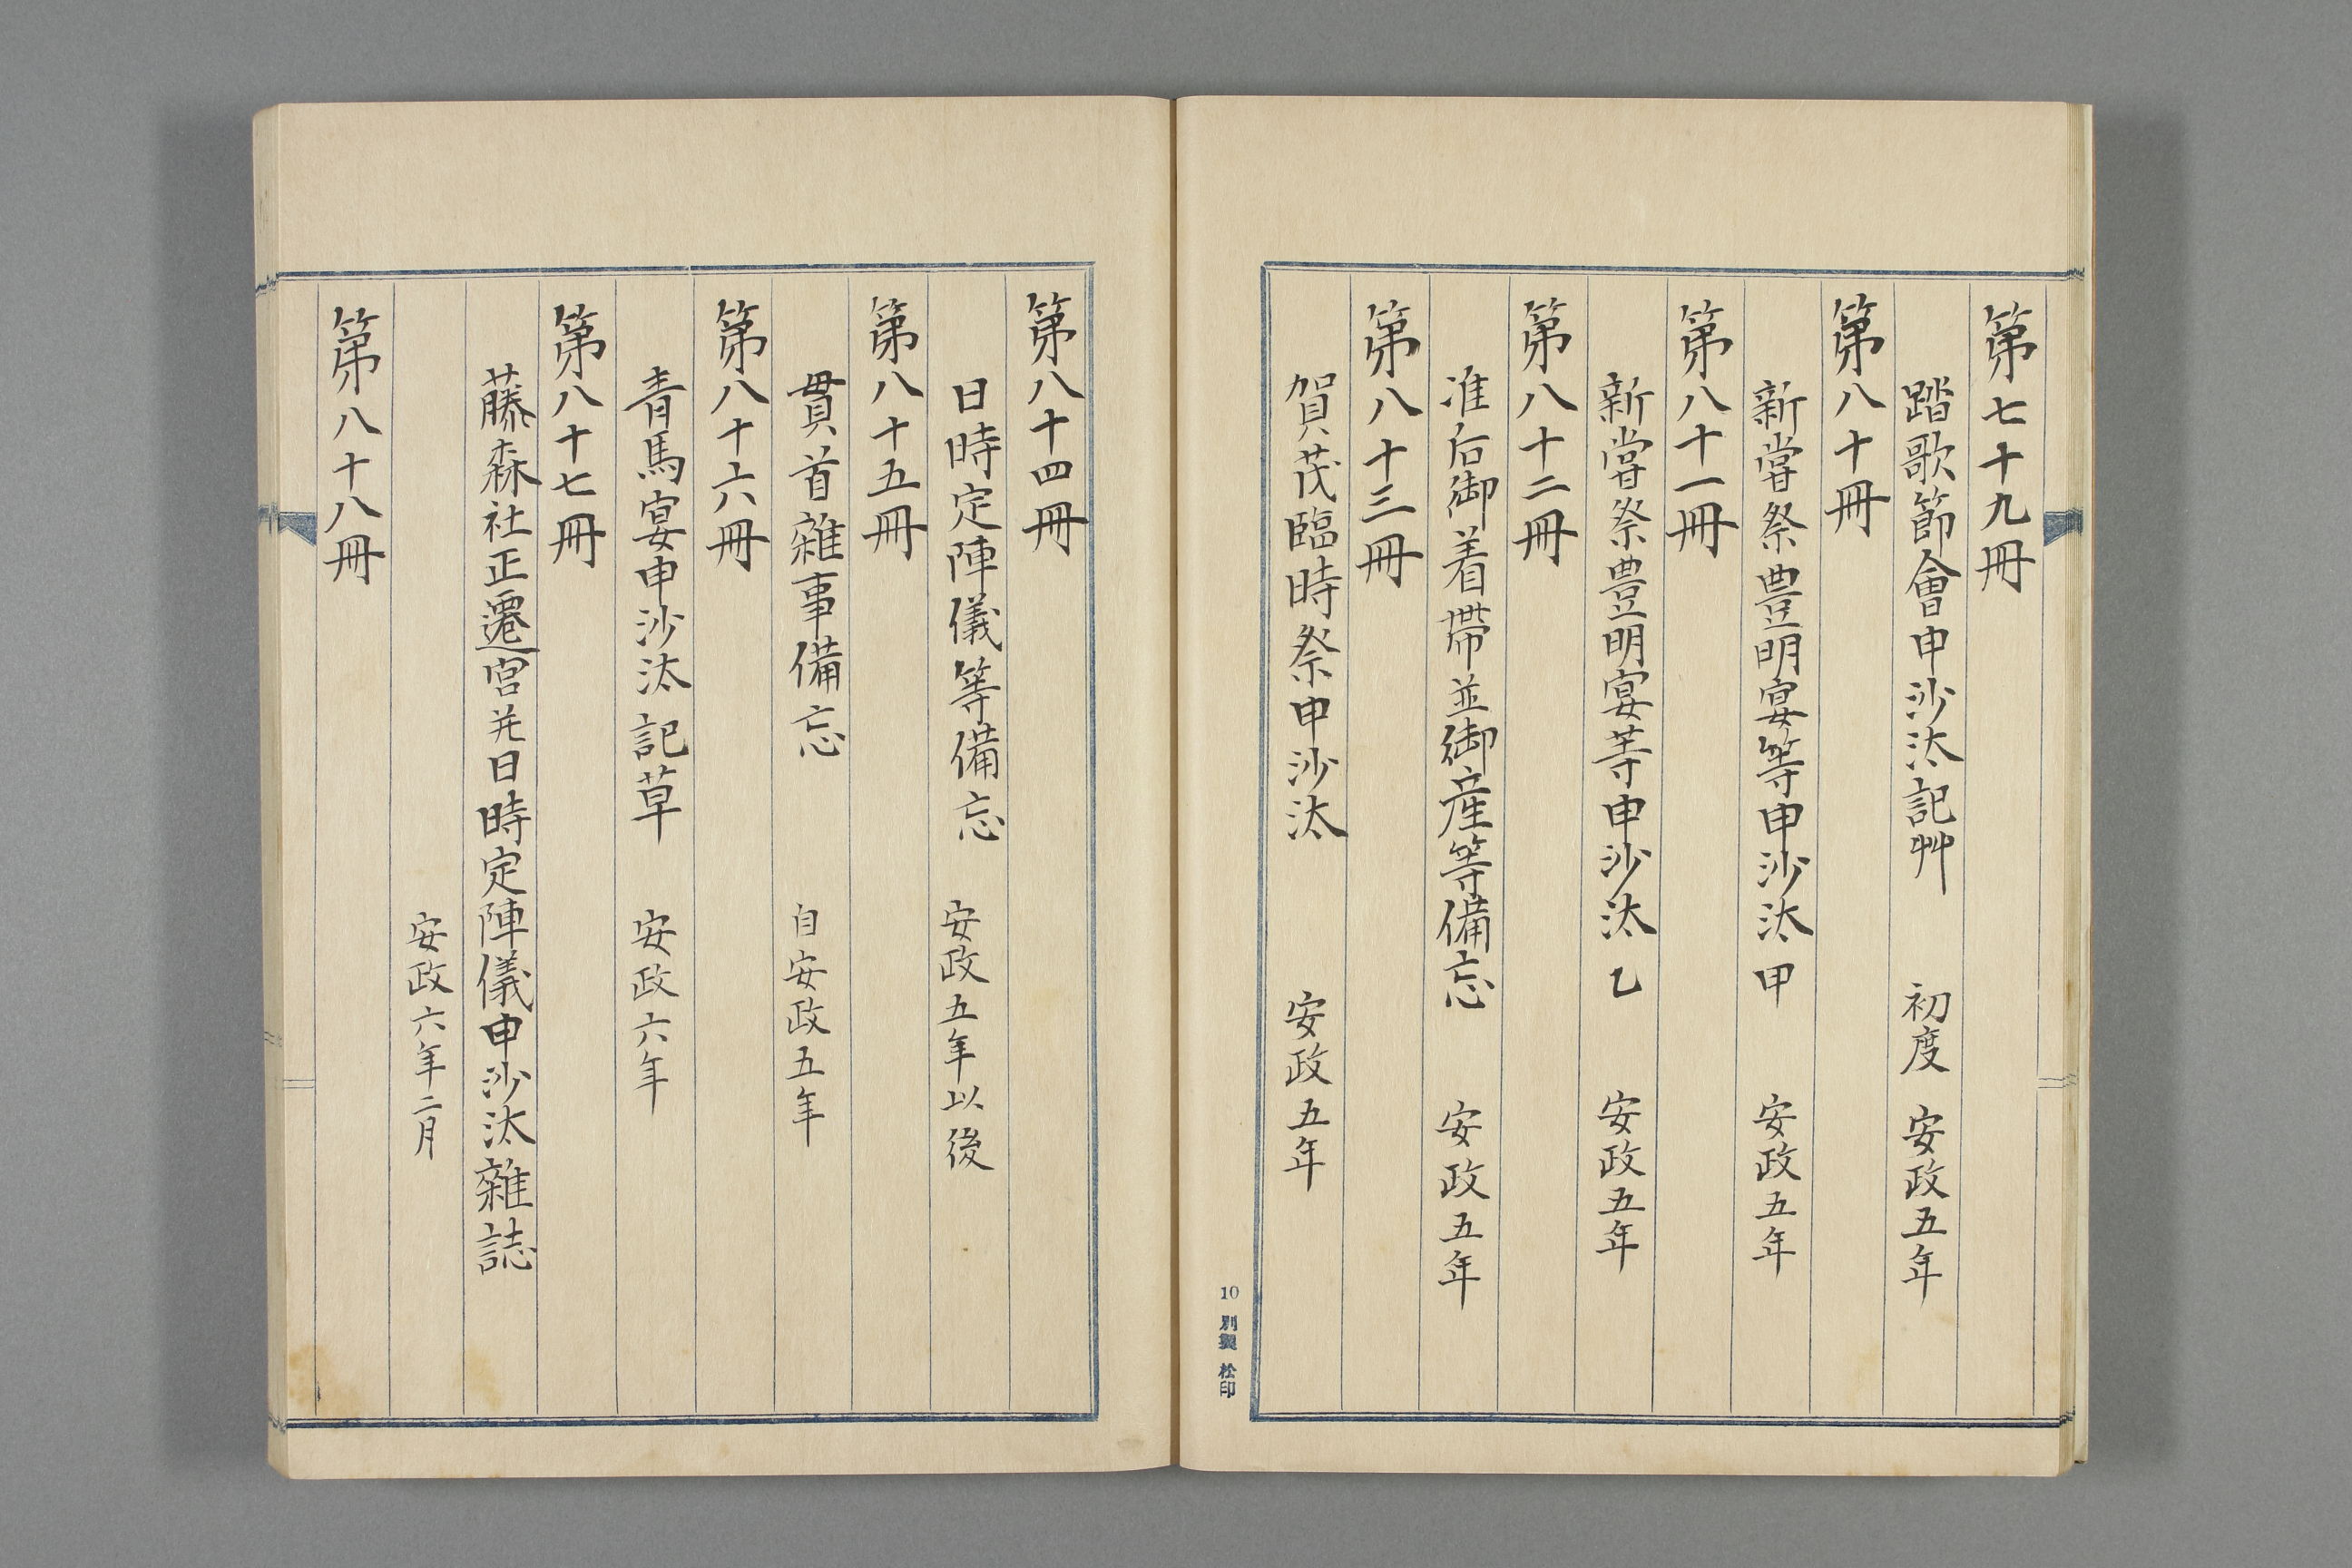 第七十九冊
踏歌節會申沙汰記艸　初度　安政五年
第八十冊
新嘗祭豊明宴等申沙汰　甲　安政五年
第八十一冊
新嘗祭豊明宴等申沙汰　乙　安政五年
第八十二冊
准后御着帶並御産等備忘　安政五年
第八十三冊
賀茂臨時祭申沙汰　安政五年
10　別製　松印
第八十四冊
日時定陣儀等備忘　安政五年以後
第八十五冊
貫首雜事備忘　自安政五年
第八十六冊
青馬宴申沙汰記草　安政六年
第八十七冊
藤森社正遷宮并日時定陣儀申沙汰雜誌
安政六年二月
第八十八冊